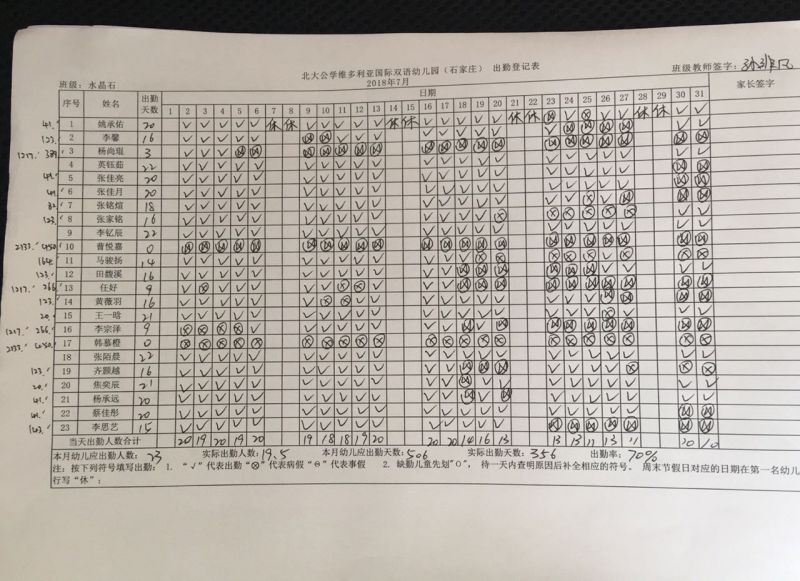 北大公学维多利亚国际双语幼儿园（石家庄） 出勤登记表
班级教师签字：
班级：水晶石
2018年7月
序号 姓名 出勤天数 日期 家长签字
1 2 3 4 5 6 7 8 9 10 11 12 13 14 15 16 17 18 19 20 21 22 23 24 25 26 27 28 29 30 31
休 休 休 休 休 休 休 休
41. 1 姚承佑 20
123. 2 李馨 16
1217. 3 杨尚琨 3
4 英钰茹 22
41. 5 张佳亮 20
41. 6 张佳月 20
82. 7 张铭煊 18
123. 8 张家铭 16
9 李钇辰 22
2133. 10 曹悦嘉 0
164. 11 马骏扬 14
123. 12 田馥溪 16
1217. 266. 13 任好 9
123. 14 黄薇羽 16
20. 15 王一晗 21
1217. 266. 16 李宗泽 9
2133. 17 韩慕橙 0
18 张陌晨 22
123. 19 齐颢越 16
20. 20 焦奕辰 21
41. 21 杨承远 20
41. 22 蔡佳彤 20
143. 23 李思艺 15
当天出勤人数合计 20 19 20 19 20 19 18 18 19 20 20 20 14 16 13 13 13 11 13 11 10 10
本月幼儿应出勤人数：23 实际出勤人数：19.5 本月幼儿应出勤天数：506 实际出勤天数：356 出勤率：70%
注：按下列符号填写出勤：1. “√”代表出勤“⊗”代表病假“⊖”代表事假 2. 缺勤儿童先划"O"，待一天内查明原因后补全相应的符号。周末节假日对应的日期在第一名幼儿
行写“休”；